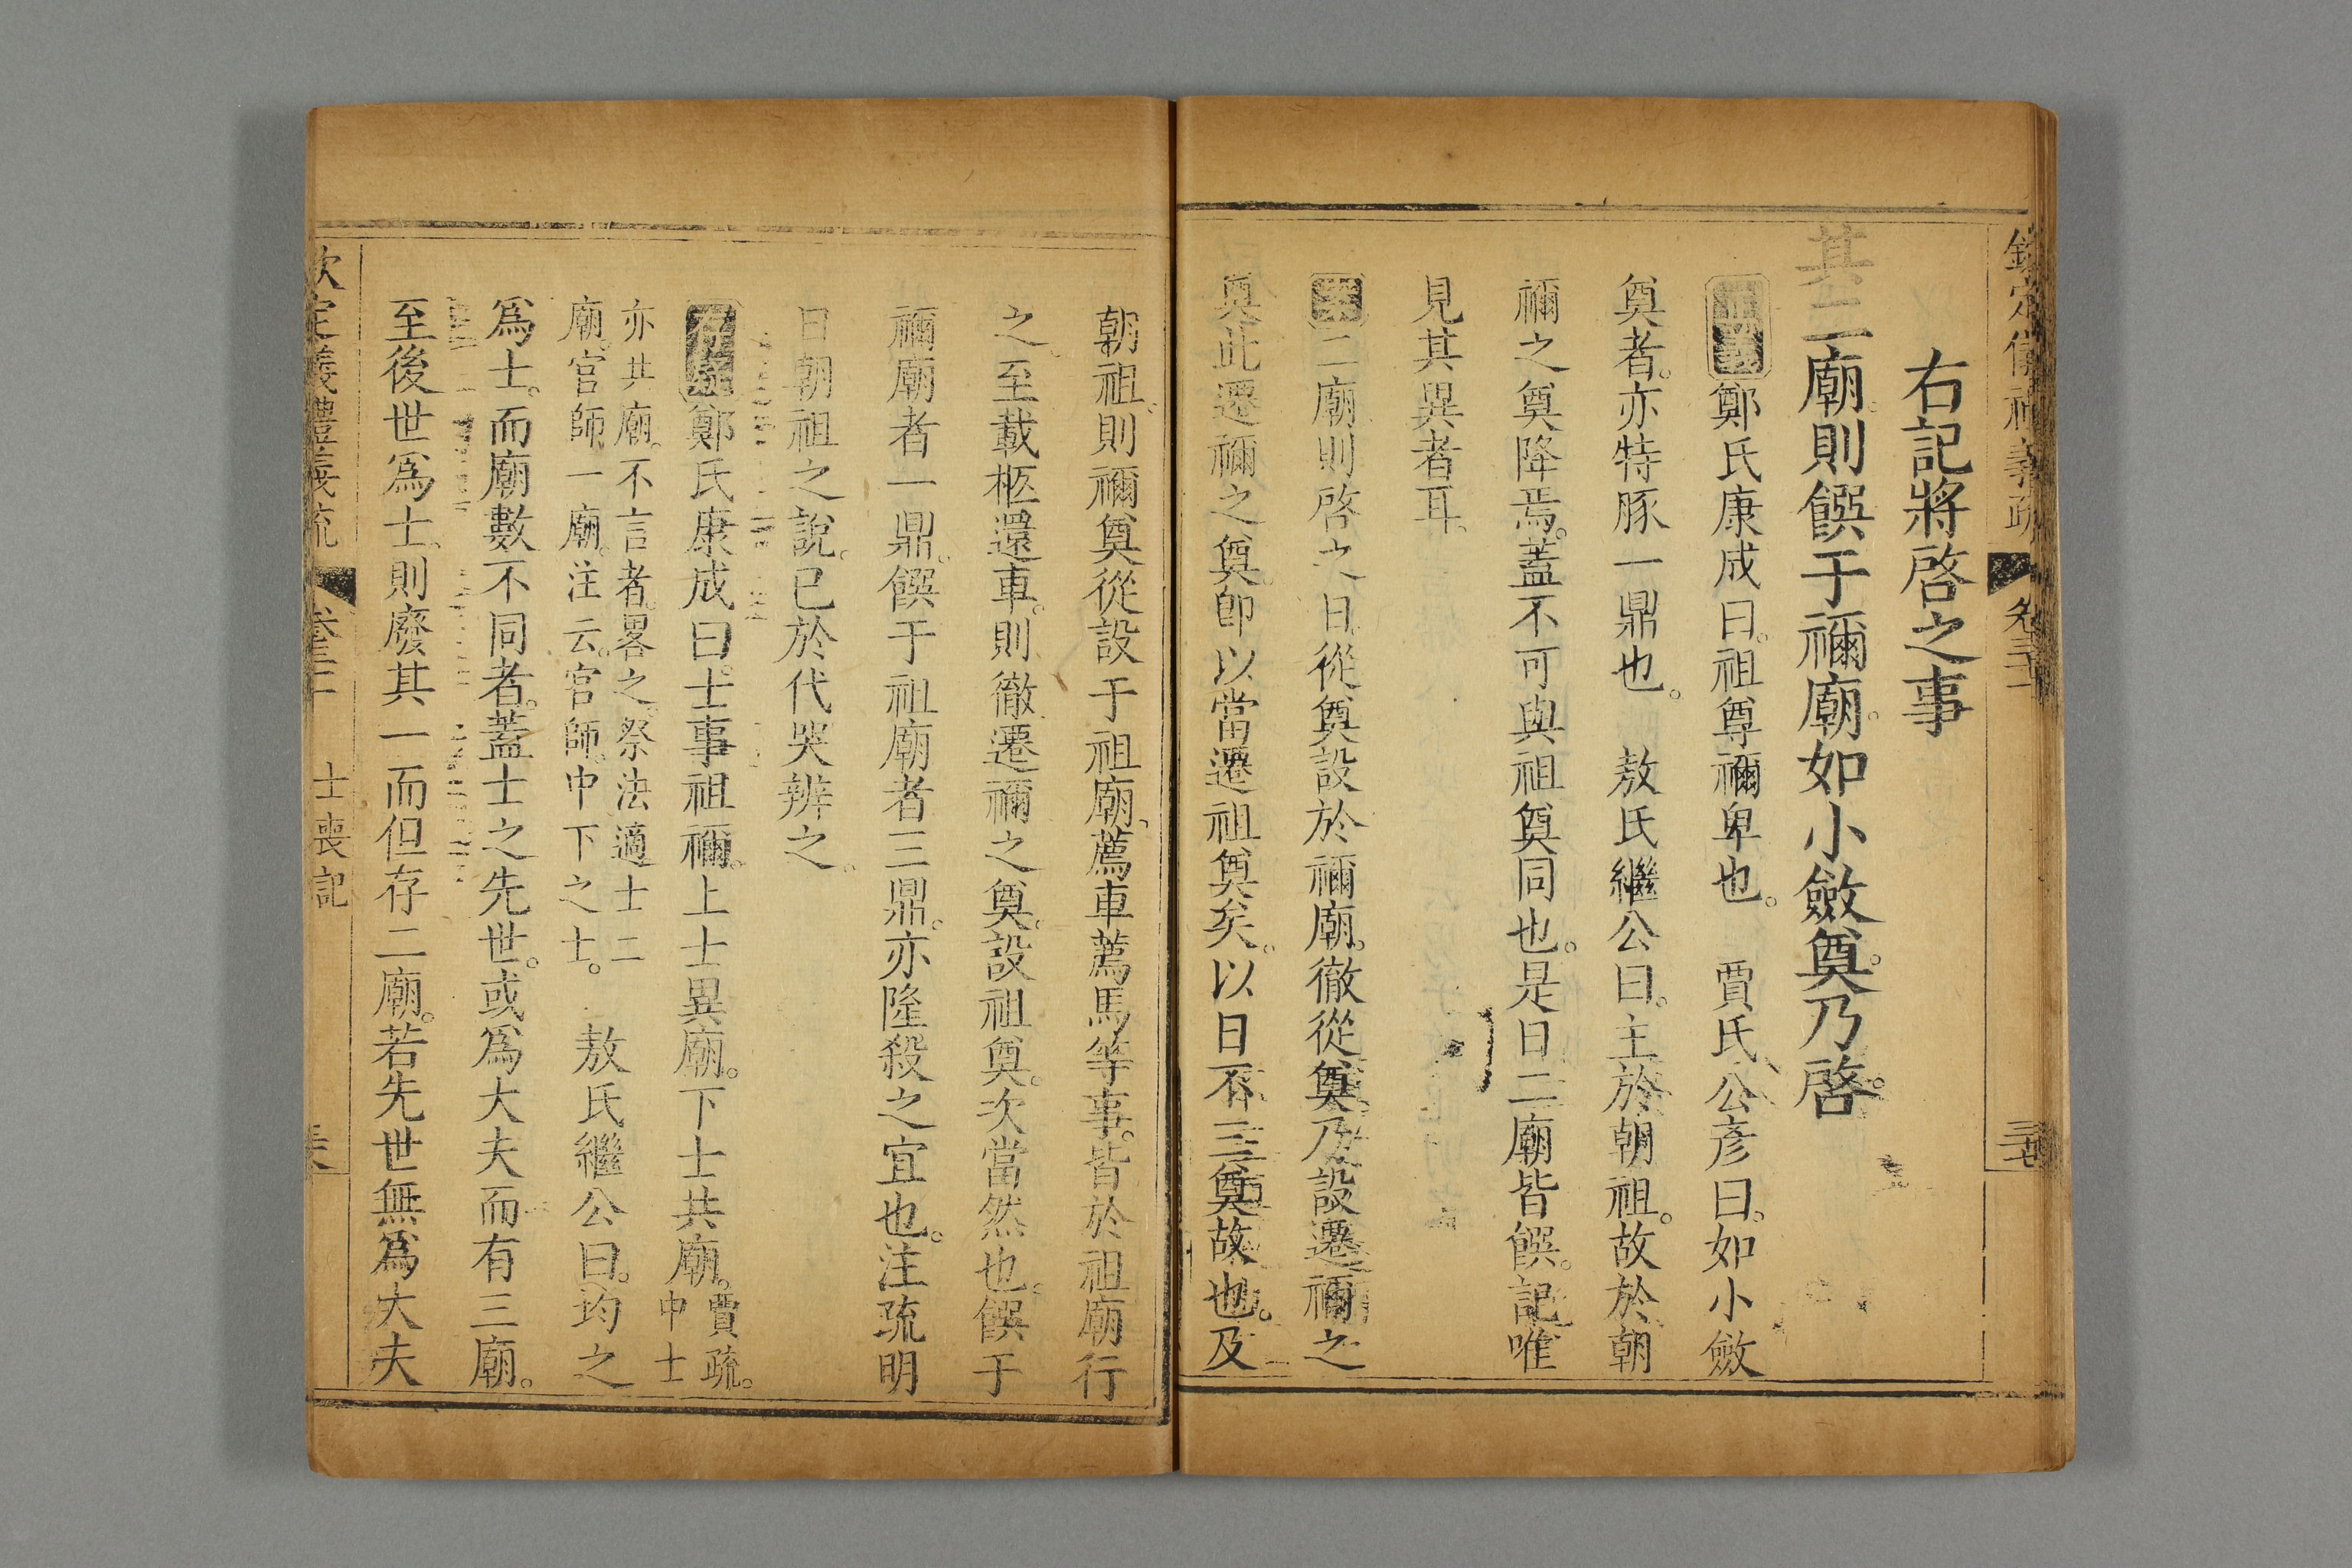 欽定儀禮義疏 卷三十一
右記將啓之事
其二廟則饌于禰廟如小斂奠乃啓
鄭氏康成曰祖尊禰卑也 賈氏公彥曰如小斂
奠者亦特豚一鼎也 敖氏繼公曰主於朝祖故於朝
禰之奠降焉蓋不可與祖奠同也是日二廟皆饌記唯
見其異者耳
案二廟則啓之日從奠設於禰廟徹從奠乃設遷禰之
奠此遷禰之奠卽以當遷祖奠矣以日不三奠故也及
朝祖則禰奠從設于祖廟薦車薦馬等事皆於祖廟行
之至載柩還車則徹遷禰之奠設祖奠次當然也饌于
禰廟者一鼎饌于祖廟者三鼎亦隆殺之宜也注疏明
日朝祖之說已於代哭辨之
存疑鄭氏康成曰士事祖禰上士異廟下士共廟賈疏中士
亦共廟不言者畧之祭法適士二
廟官師一廟注云官師中下之士 敖氏繼公曰均之
爲士而廟數不同者蓋士之先世或爲大夫而有三廟
至後世爲士則廢其一而但存二廟若先世無爲大夫
欽定儀禮義疏 士喪記